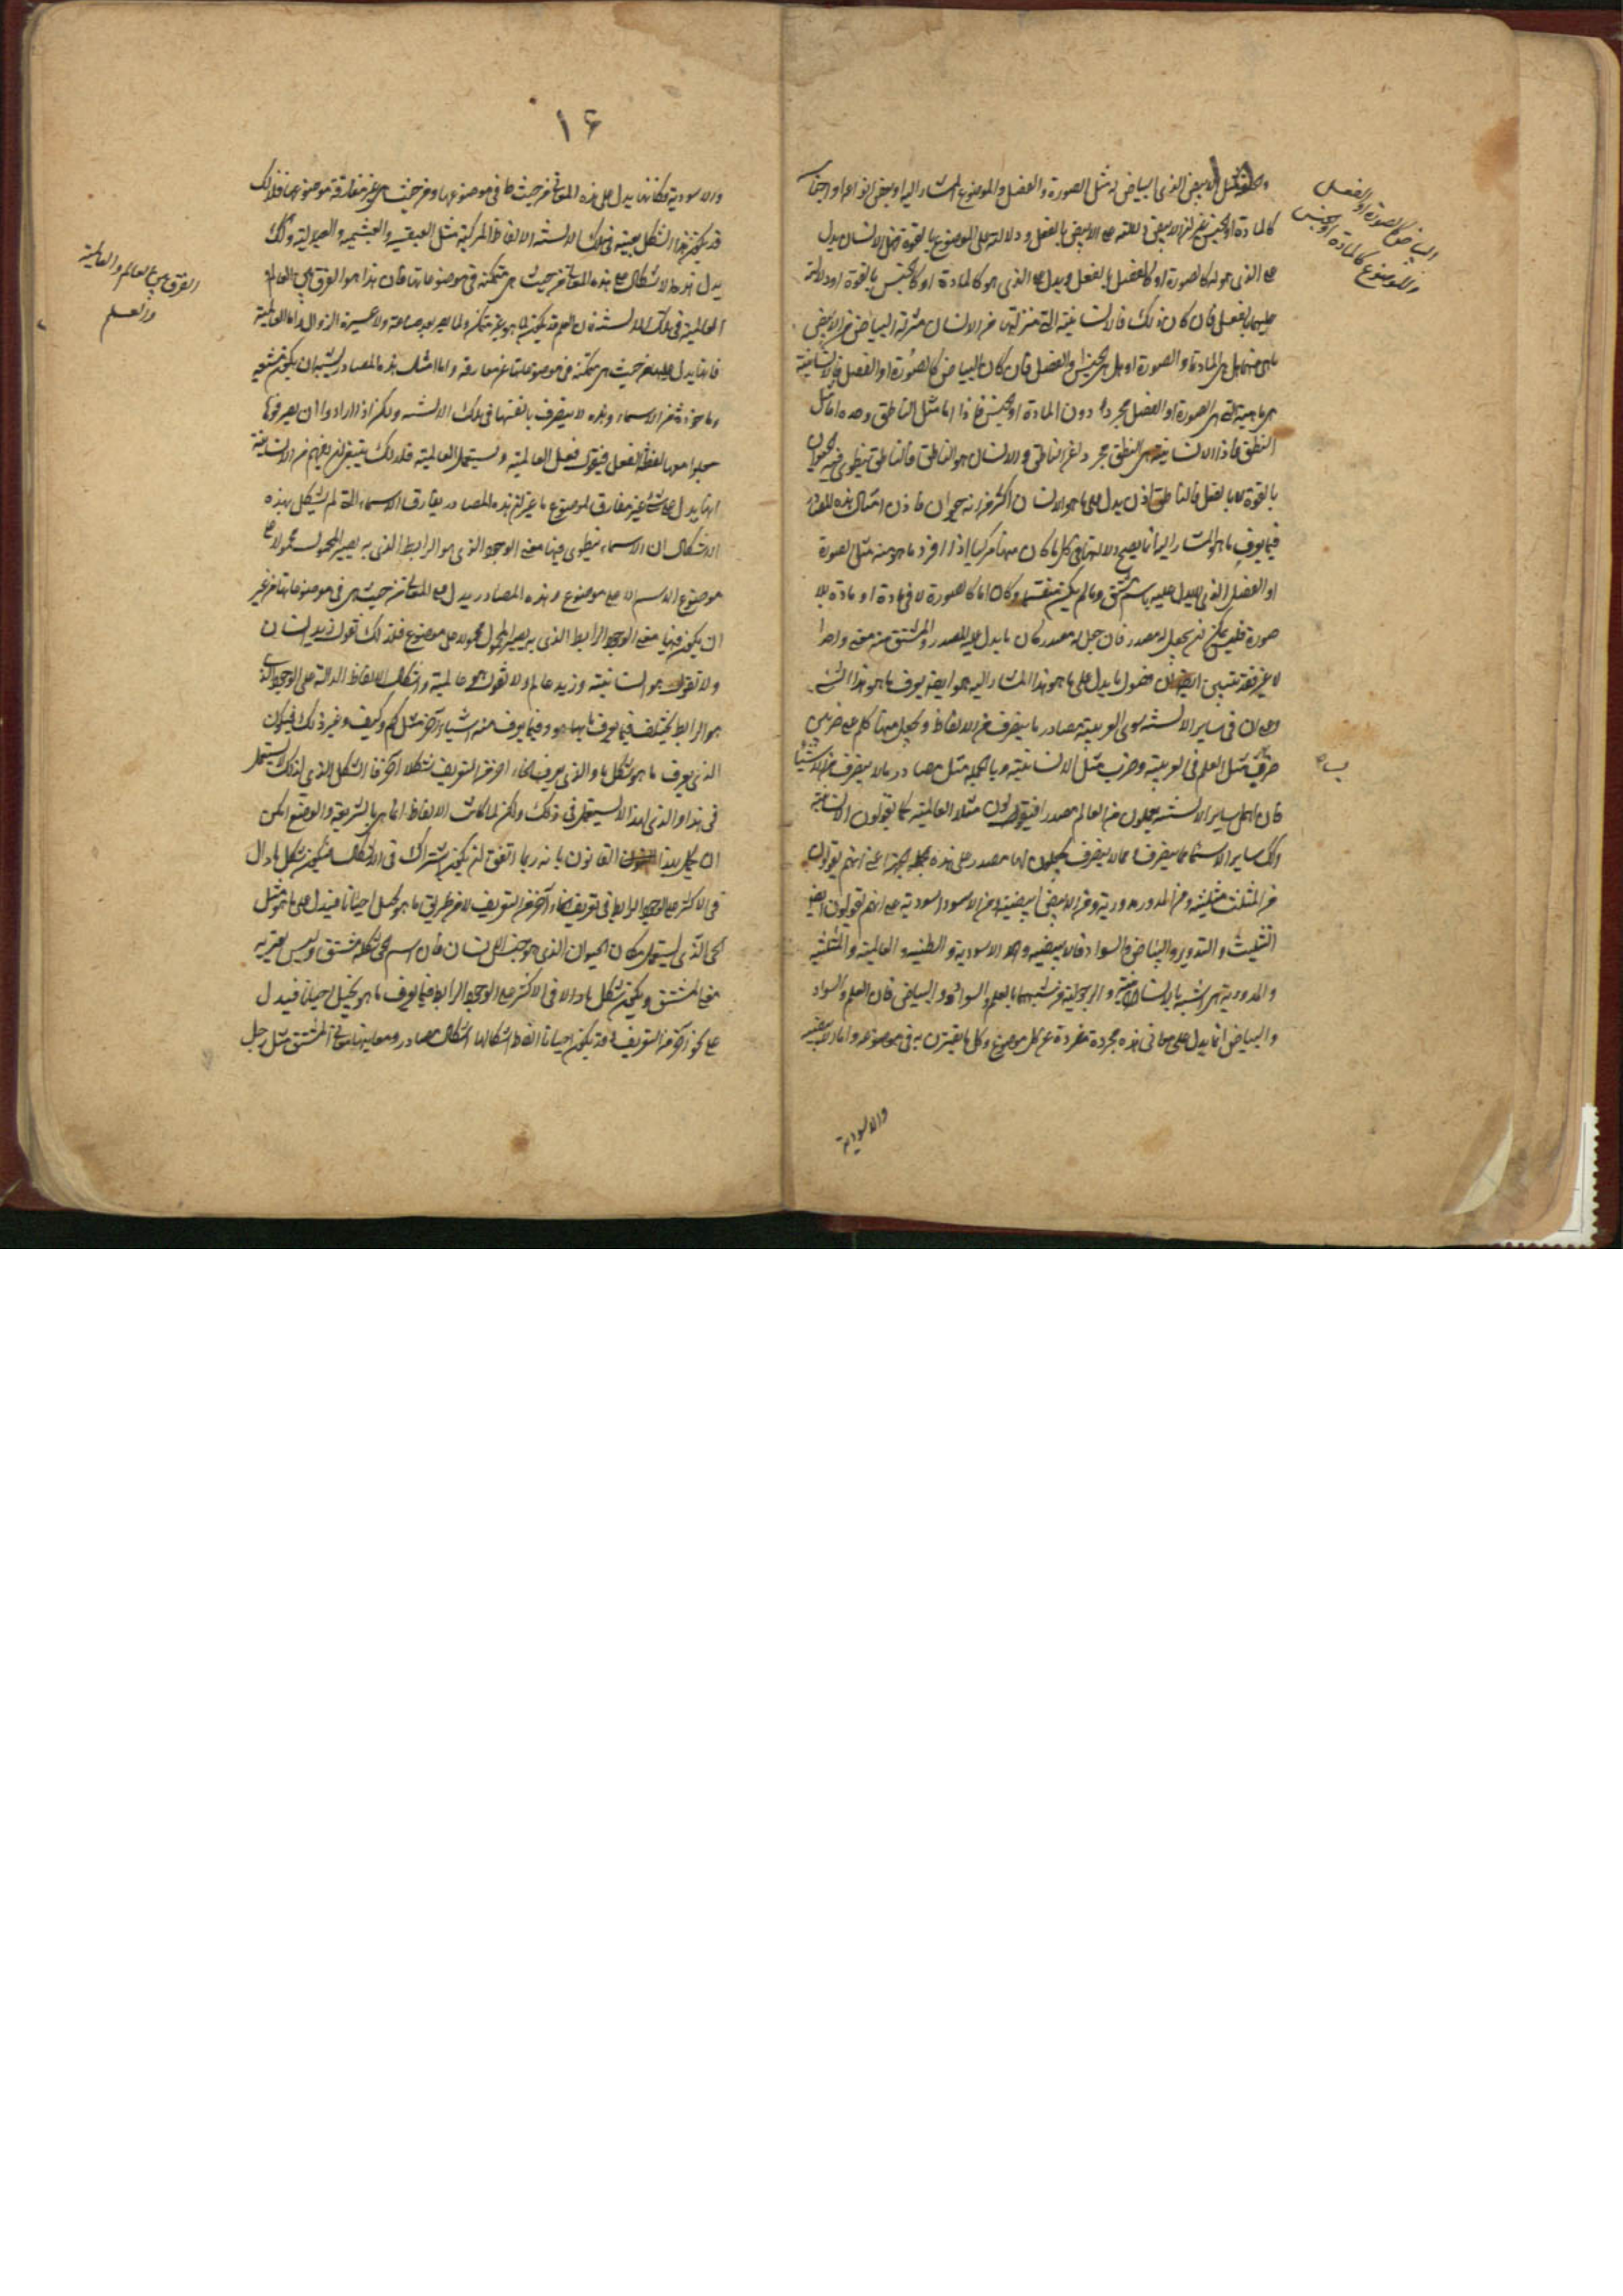 الابيض الذى البياض له مثل الصورة والفصل والموضوع المشار اليه او بعض انواعه او اجناسه
كالمادة او الجنس غير ان الابيض دلالته على الابيض بالفعل ودلالته على الموضوع بالقوة فهل الانسان يدل
على الذى هو له كالصورة او كالفصل بالفعل ويدل على الذى هو كالمادة او كالجنس بالقوة او دلالته
عليهما بالفعل فان كان ذلك فالانسانية التى منزلتها من الانسان منزلة البياض من الابيض
ما هى منهما هل هى المادة او الصورة او هل هى الجنس او الفصل فان كان البياض كالصورة او الفصل فالانسانية
هى ماهيته التى هى الصورة او الفصل مجردا دون المادة او الجنس فاذا اما مثل الناطق وحده اما مثل
النطق فاذا الانسانية هى النطق مجردا غير الناطق والانسان هو الناطق فالناطق ينطوى فيه الحيوان
بالقوة لا بالفعل فالناطق اذن يدل على ما هو الانسان اكثر من انه حيوان فاذن امثال هذه المصادر
فيما يعرف ما هو المشار اليه انما يصح دلالتها فى كل ما كان منها مركبا اذا افرد ما هو منه مثل الصورة
او الفصل الذى يدل عليه باسم مشتق وما لم يكن منقسما وكان اما كالصورة لا فى مادة او مادة بلا
صورة فليس يمكن ان يجعل له مصدر فان جعل له مصدر كان ما يدل عليه المصدر والمشتق منه معنى واحدا
لا غير فقد تبين ان فصول ما يدل على ما هو هذا المشار اليه هو ايضا يعرف ما هو هذا الشىء
ولان فى ساير الالسنة سوى العربية مصادر ما يتصرف من الالفاظ ويجعل منها كلم على ضربين
ضرب مثل العلم فى العربية وضرب مثل الانسانية وبالجملة مثل مصادر ما لا يتصرف من الاشياء
فان اهل ساير الالسنة يعملون من العالم مصدرا فيقولون مثلا العالمية كما يقولون الانسانية
وكذلك ساير الاسماء مما يتصرف ومما لا يتصرف يجعلون لها مصدر على هذه الجهة اعنى انهم يقولون
من المثلث مثلثية ومن المدور مدورية ومن الابيض ابيضية ومن الاسود اسودية على انهم يقولون ايضا
التثليث والتدوير والبياض والسواد فالابيضية والاسودية والطبيه و العالمية والمثلثية
والمدورية هى اشبه بالانسانية والرجولية من شبهها بالعلم والسواد والبياض فان العلم والسواد
والبياض انما يدل على معانى هذه مجردة مفردة عن كل موضوع وكل ما يقترن به فى موضوعه واما الابيضية
والاسودية
البياض كالصورة او الفصل
والموضوع كالمادة او الجنس
١۶
والاسودية فكانها يدل على هذه المعانى من حيث ما فى موضوعها ومن حيث هى غير مفارقة موضوعها فلذلك
قد يكون هذا الشكل بعينه فى تلك الالسنة الالفاظ المركبة مثل العبقسية والعبشمية وكذلك
يدل هذه الاشكال على هذه المعانى من حيث هى متمكنة فى موضوعاتها فان هذا هو الفرق بين العالم
العالمية فى تلك الالسنة فان العلم قد يكون لما هو غير متمكن ولما لم يصر بعد صناعة ولا عسيرة الزوال واما العالمية
فانها يدل عليها من حيث هى متمكنة فى موضوعاتها غير مفارقة واما امثلة هذه المصادر يشبه ان يكون مشتقة
وماخوذة من الاسماء وهذه لا يتصرف بانفسها فى تلك الالسنة ولكن اذا ارادوا ان يصرفوها
جعلوا معها لفظة الفعل فيقولون فعل العالمية ويستعمل العالمية فلذلك ينبغى ان يفهم من الانسانية
انها يدل على شىء غير مفارق لموضوع ما غير ان هذه المصادر يفارق الاسماء التى لم يشكل بهذه
الاشكال ان الاسماء ينطوى فيها معنى الوجود الذى هو الرابط الذى به يصير المحمول محمولا على
موضوع الاسم الا على موضوع وهذه المصادر يدل على المعانى من حيث هى فى موضوعاتها من غير
ان يكون فيها معنى الوجود الرابط الذى به يصير المحمول محمولا على موضوع فلذلك نقول زيد انسان
ولا نقول هو انسانية وزيد عالم ولا نقول هو عالمية واشكال الالفاظ الدالة على الوجود الذى
هو الرابط يختلف فيما يعرف ما هو وفيما يعرف منه اشياء اخر مثل كم وكيف وغير ذلك فيكون
الذى يعرف ما هو شكل ما والذى يعرف انحاء اخر من التعريف شكلا اخر فالشكل الذى لذلك لا يستعمل
فى هذا والذى لهذا لا يستعمل فى ذلك ولكن لما كانت الالفاظ انما هى بالشريعة والوضع امكن
ان يخل بهذا القانون بانه ربما اتفق ان يكون اشتراك فى الاشكال فيكون شكل ما دال
فى الاكثر على الوجود الرابط فى تعريف انحاء اخر من التعريف لا من طريق ما هو يحمل احيانا فيدل على ما هو مثل
الحى الذى يستعمل مكان الحيوان الذى هو جنس الانسان فان اسم الحى شكله مشتق وليس يعتر به
معنى المشتق ويكون شكل ما دالا فى الاكثر على الوجود الرابط فيما يعرف ما هو يخيل احيانا فيدل
على نحو اخر من التعريف وقد يكون احيانا الفاظ اشكالها اشكال مصادر ومعانيها معانى المشتق مثل رجل
الفرق بين العالم والعالمية
والعلم